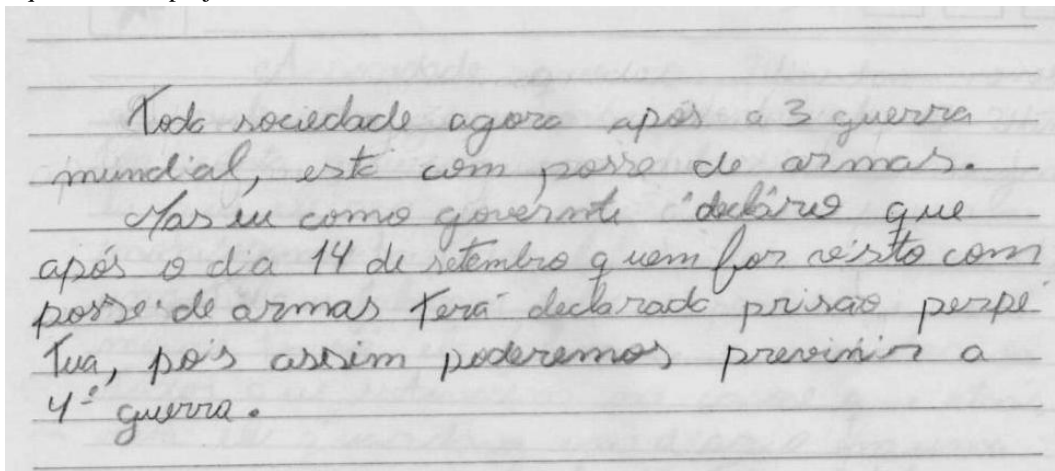 Toda sociedade agora após a 3 guerra
mundial, está com posse de armas.
Mas eu como governante declaro que
após o dia 14 de setembro quem for visto com
posse de armas terá declarado prisão perpé
tua, pois assim poderemos previnir a
4ª guerra.